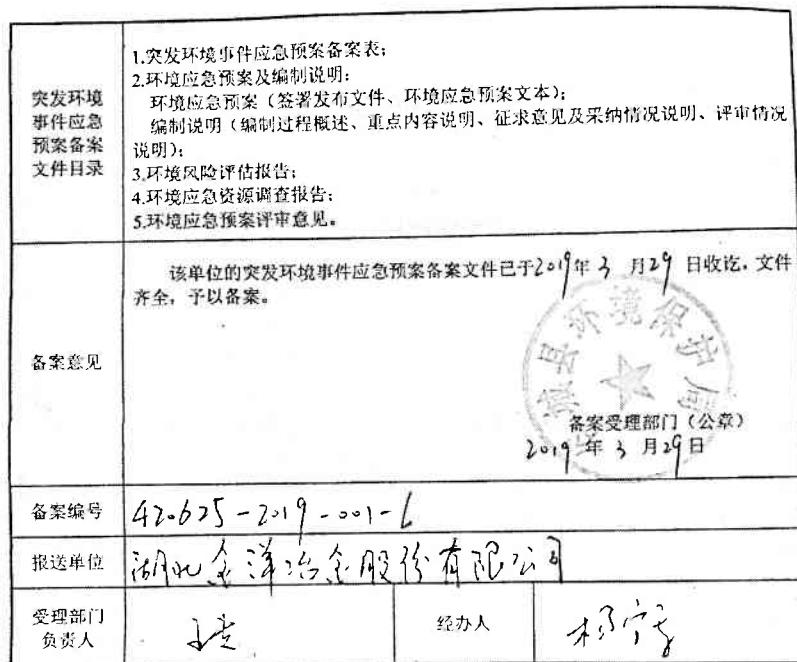 突发环境
事件应急
预案备案
文件目录
1.突发环境事件应急预案备案表；
2.环境应急预案及编制说明：
环境应急预案（签署发布文件、环境应急预案文本）；
编制说明（编制过程概述、重点内容说明、征求意见及采纳情况说明、评审情况
说明）；
3.环境风险评估报告；
4.环境应急资源调查报告；
5.环境应急预案评审意见。
备案意见
该单位的突发环境事件应急预案备案文件已于2019年3月29日收讫，文件
齐全，予以备案。
县环境保护局
备案受理部门（公章）
2019年3月29日
备案编号
420625-2019-001-L
报送单位
湖北金洋冶金股份有限公司
受理部门
负责人
经办人